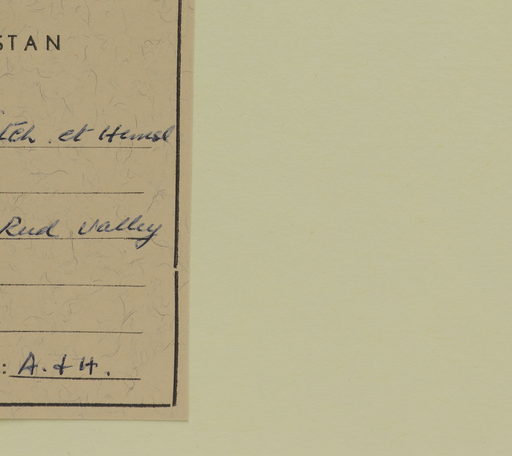 STAN
itch. et Hemsl
Rud Valley
: A. + H.